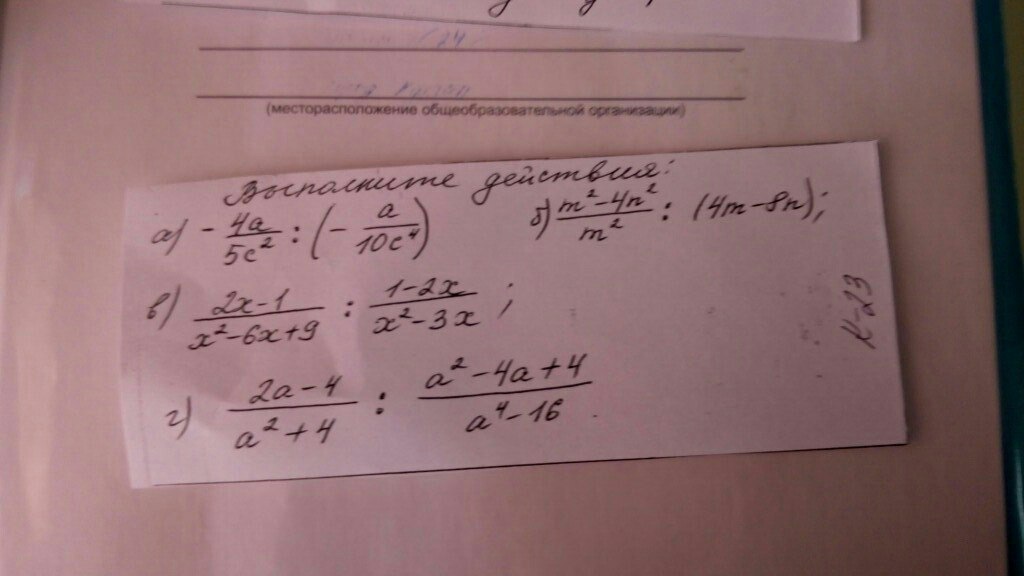 (месторасположение общеобразовательной организации)
Выполните действия:
а) - 4a/5c² : (- a/10c⁴) б) m²-4n²/m² : (4m-8n);
в) 2x-1/x²-6x+9 : 1-2x/x²-3x ;
г) 2a-4/a²+4 : a²-4a+4/a⁴-16 .
К-23